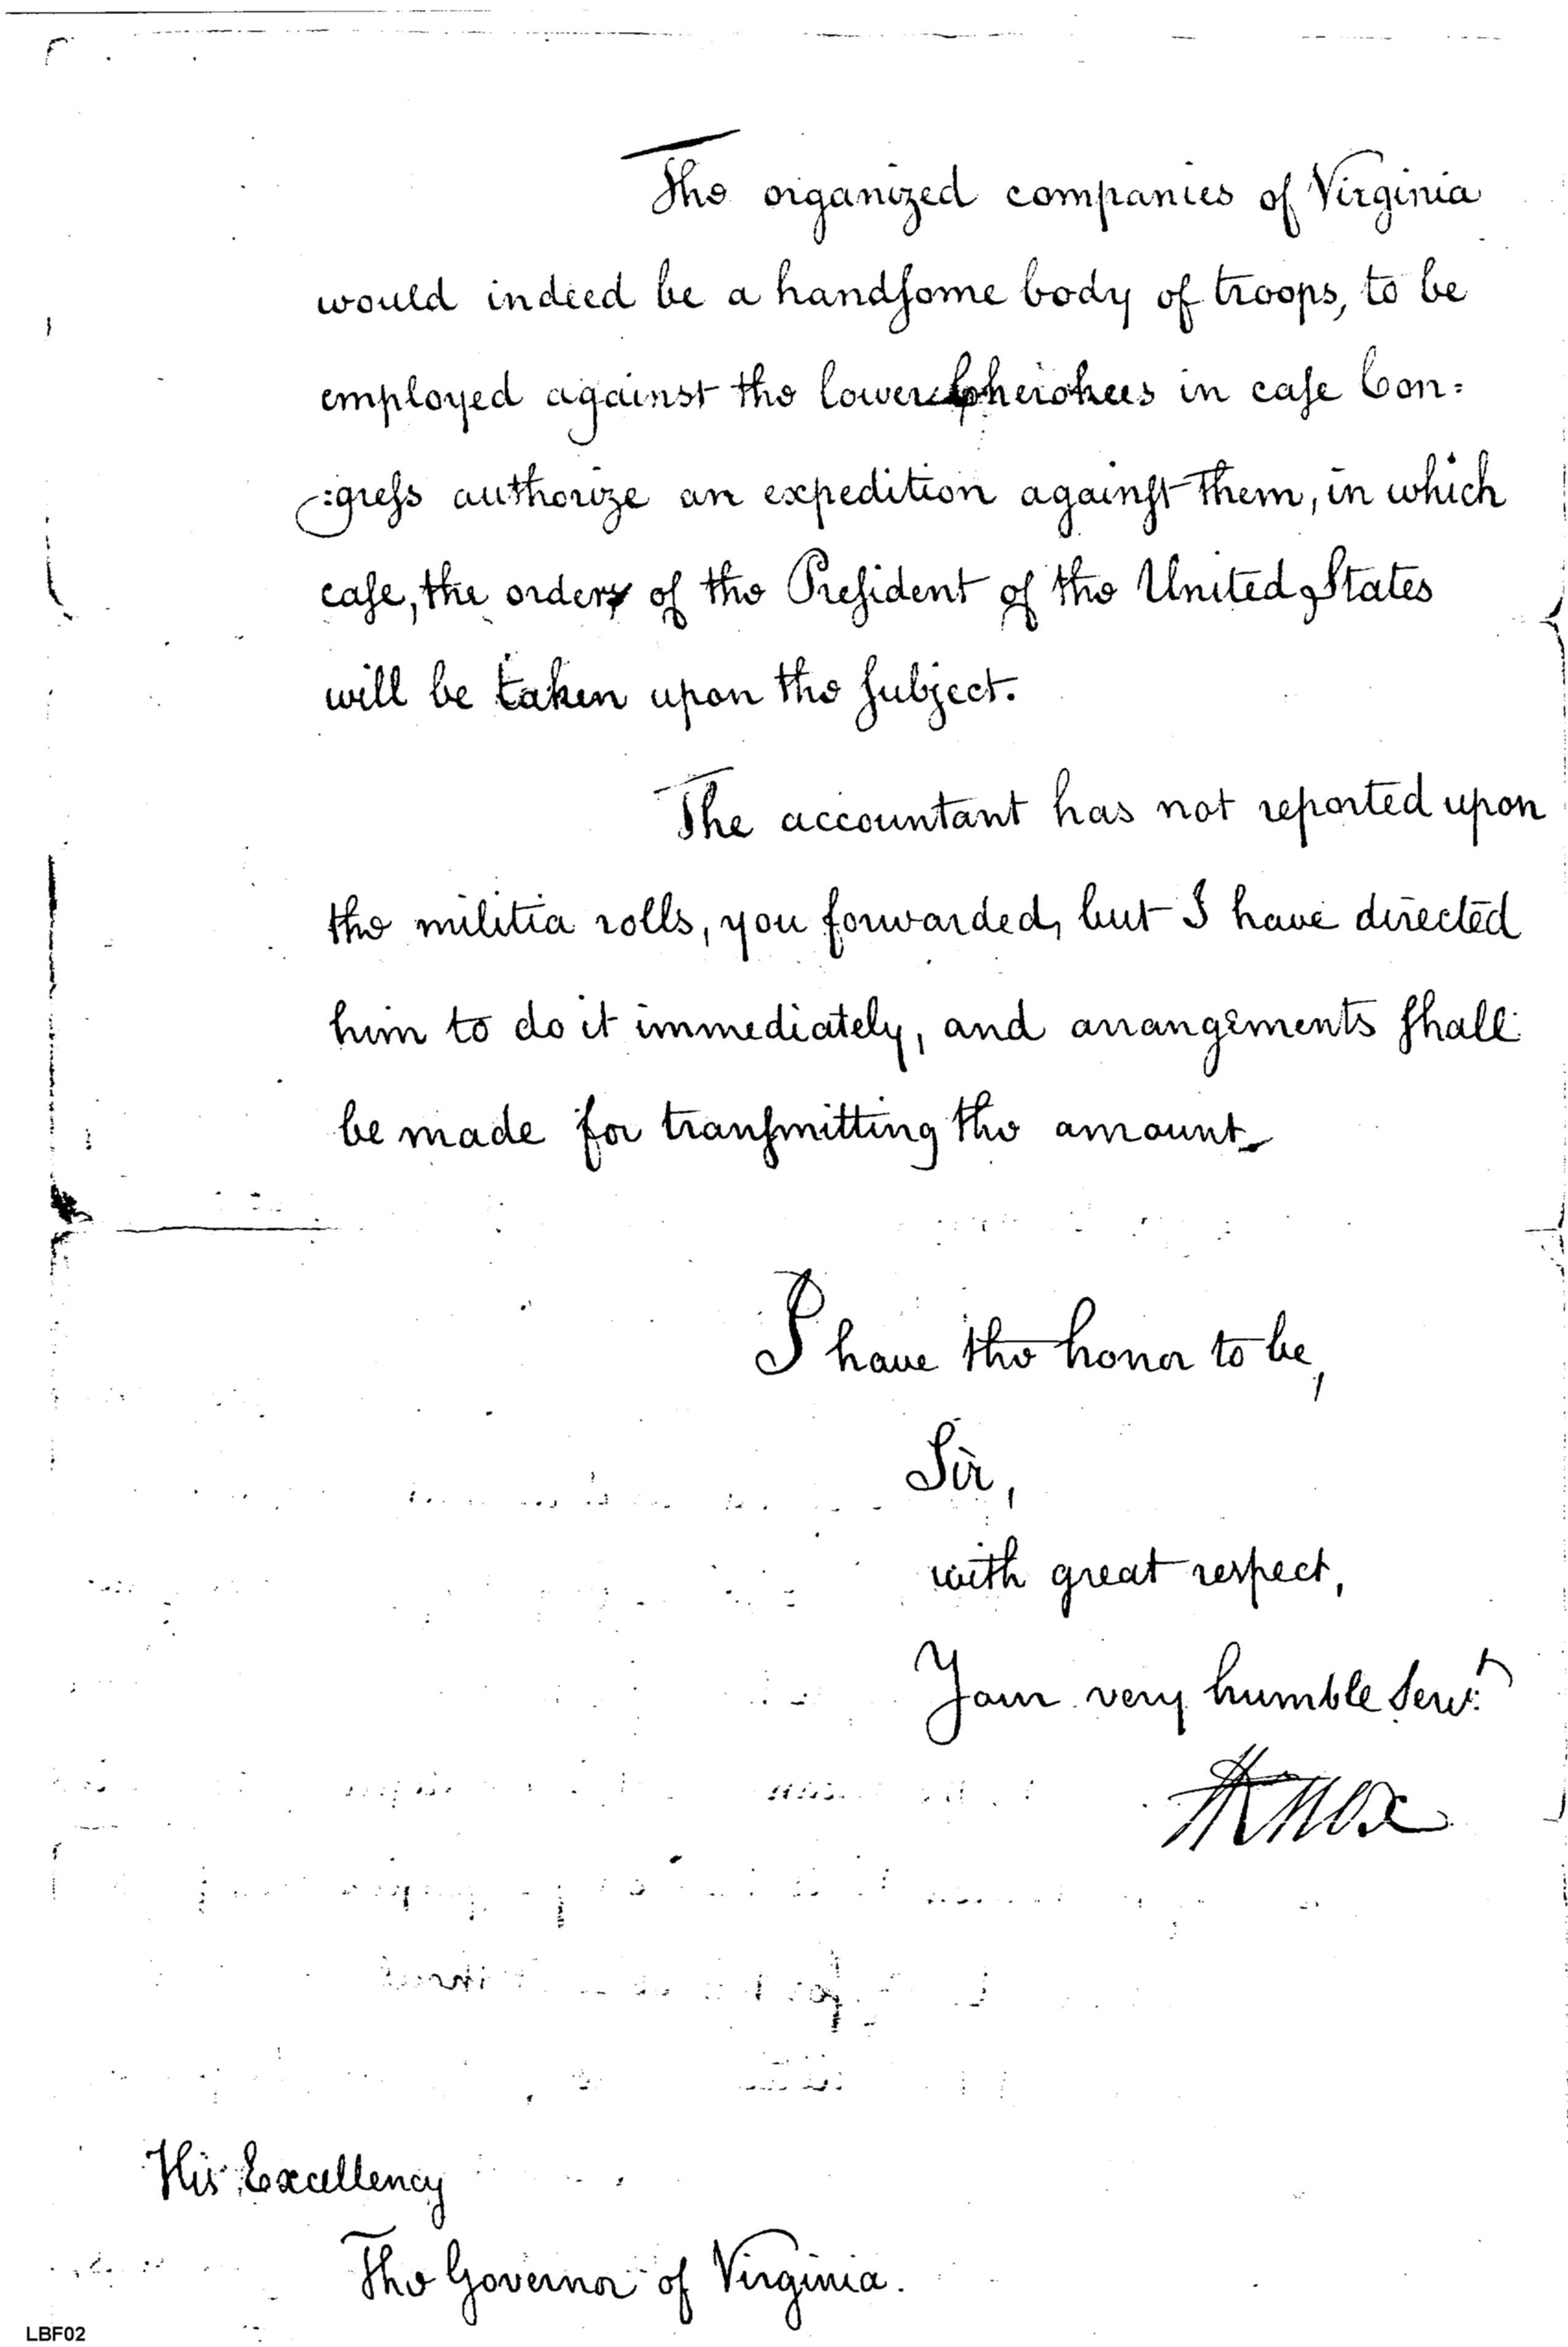 The organized companies of Virginia
would indeed be a handſome body of troops, to be
employed against the lower Cherokees in caſe Con=
=greſs authorize an expedition againſt them, in which
caſe, the orders of the Preſident of the United States
will be taken upon the ſubject.
The accountant has not reported upon
the militia rolls, you forwarded, but I have directed
him to do it immediately, and arrangements ſhall
be made for tranſmitting the amount.
I have the honor to be,
Sir,
with great respect,
Your very humble Servt.
HKnox
His Excellency
The Governor of Virginia.
LBF02